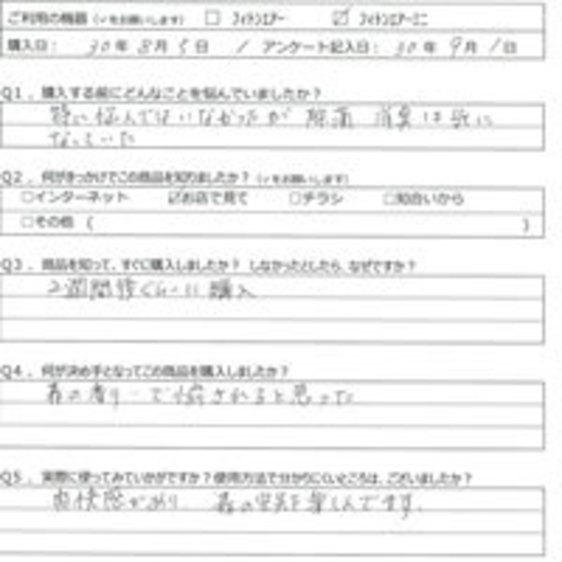 ご利用の機器 (✓をお願いします) ☐ フィトンエアー ☑ フィトンエアーミニ
購入日: 30年 8月 5日 / アンケート記入日: 30年 9月 1日
Q1. 購入する前にどんなことを悩んでいましたか?
特に悩んではいなかったが 除菌 消臭は気に
なっていた
Q2. 何がきっかけでこの商品を知りましたか? (✓をお願いします)
☐インターネット ☑お店で見て ☐チラシ ☐知合いから
☐その他 ( )
Q3. 商品を知って、すぐに購入しましたか? しなかったとしたら、なぜですか?
2週間後くらいに購入
Q4. 何が決め手となってこの商品を購入しましたか?
森の香りで癒されると思った
Q5. 実際に使ってみていかがですか?使用方法で分かりにくいところは、ございましたか?
爽快感があり、森の空気を楽しんでます。